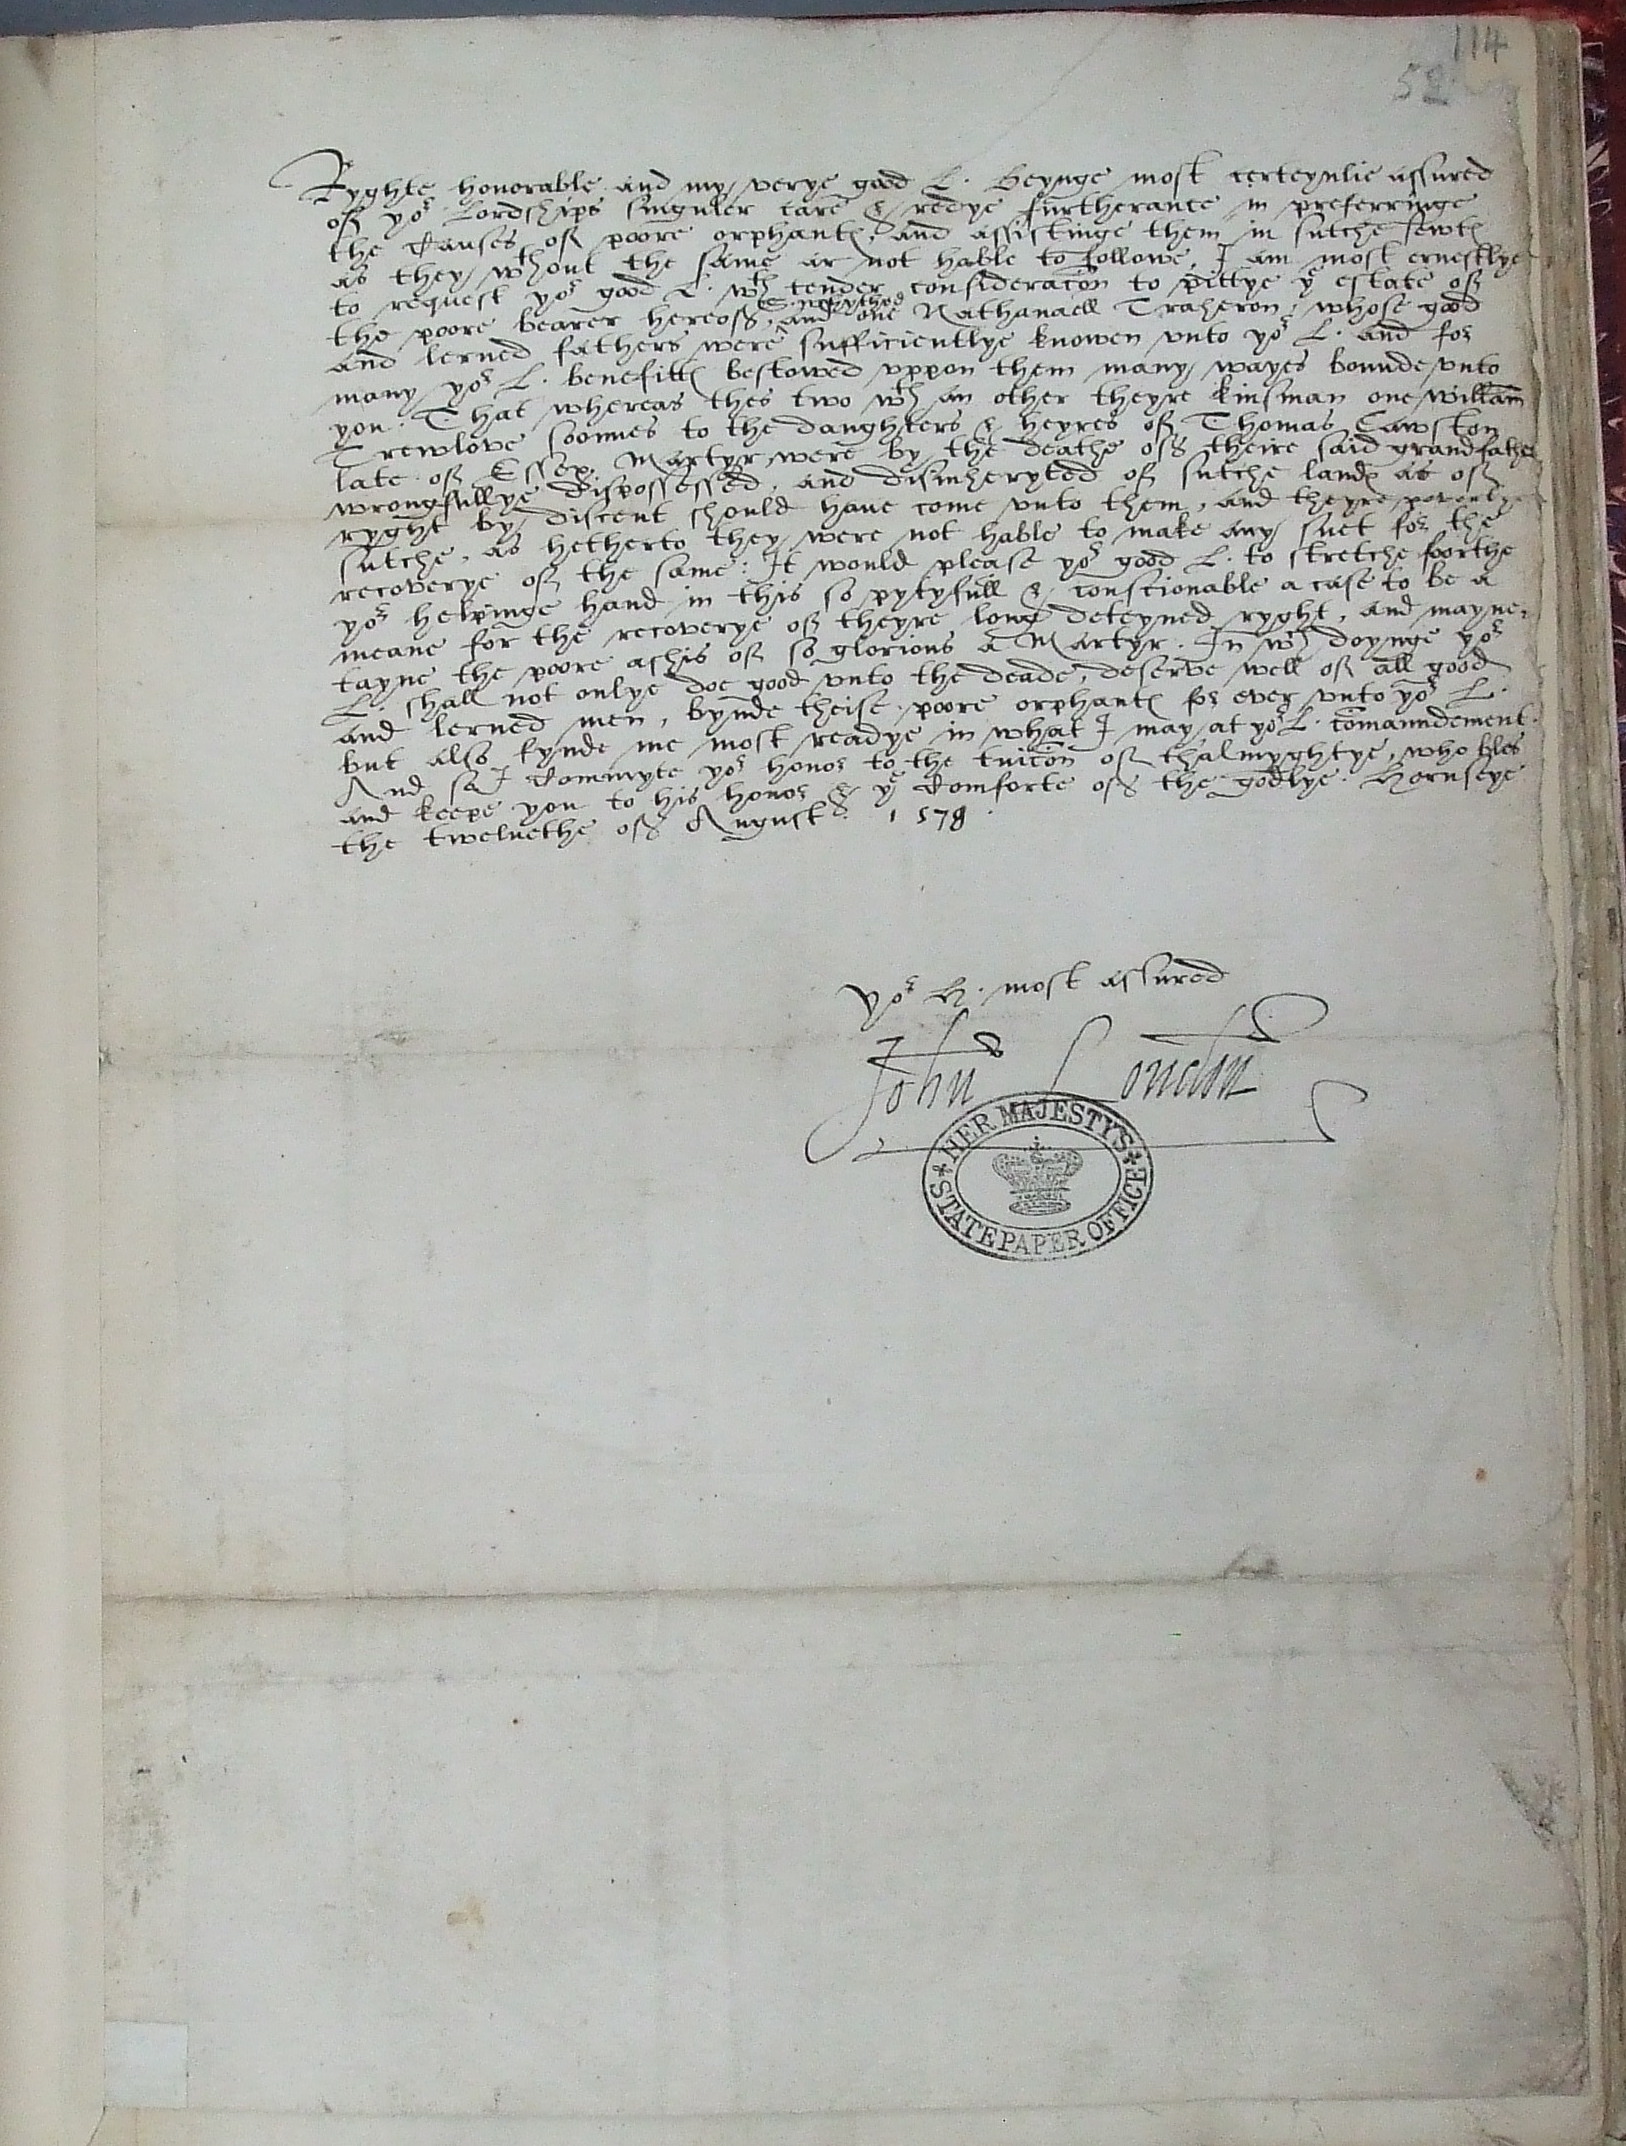 114
52
Ryghte honorable and my verye good L. Beynge most certeynlie assured
of yor Lordships singuler care & redye furtherance in preferringe
the causes of poore orphantes, and assistinge them in sutche sewtes
as they wthout the same ar not hable to followe, I am most ernestlye
to request yor good L. wth tender consideracon to pittye ye estate of
the poore bearer hereof, and one Nathanaell Traheron, whose good
and lerned fathers were sufficientlye knowen vnto yor L. and for
many yor L. benefittes bestowed vppon them many wayes bounde vnto
you. That whereas thes two wth an other theyre kinsman one willam
Trewlove soonnes to the daughters & heyres of Thomas Cawston
late of Essex Martyr, were by the deathe of theire said grandfather
wrongfullye dispossessed, and disinheryted of sutche landes as of
ryght by discent should haue come vnto them, and theyre povertye
sutche, as hetherto they were not hable to make any suet for the
recoverye of the same: It would please yor good L. to stretche foorthe
yor helpinge hand in this so pytyfull & conscionable a case to be a
meane for the recoverye of theyre long deteyned ryght, and mayne-
tayne the poore ashis of so glorious a Martyr. In wch doynge yor
L. shall not onlye doe good vnto the deade, deserve well of all good
and lerned men, bynde theise poore orphantes for ever vnto yor L.
but also fynde me most readye in what I may at yor L. comaundement.
And so I commyte yor honor to the tuicon of thalmyghtye, who bles
and keepe you to his honor & ye comforte of the godlye. Hornseye
the twelueth of August. 1578.
Yor H. most assured
John London
HER MAJESTY'S
STATE PAPER OFFICE